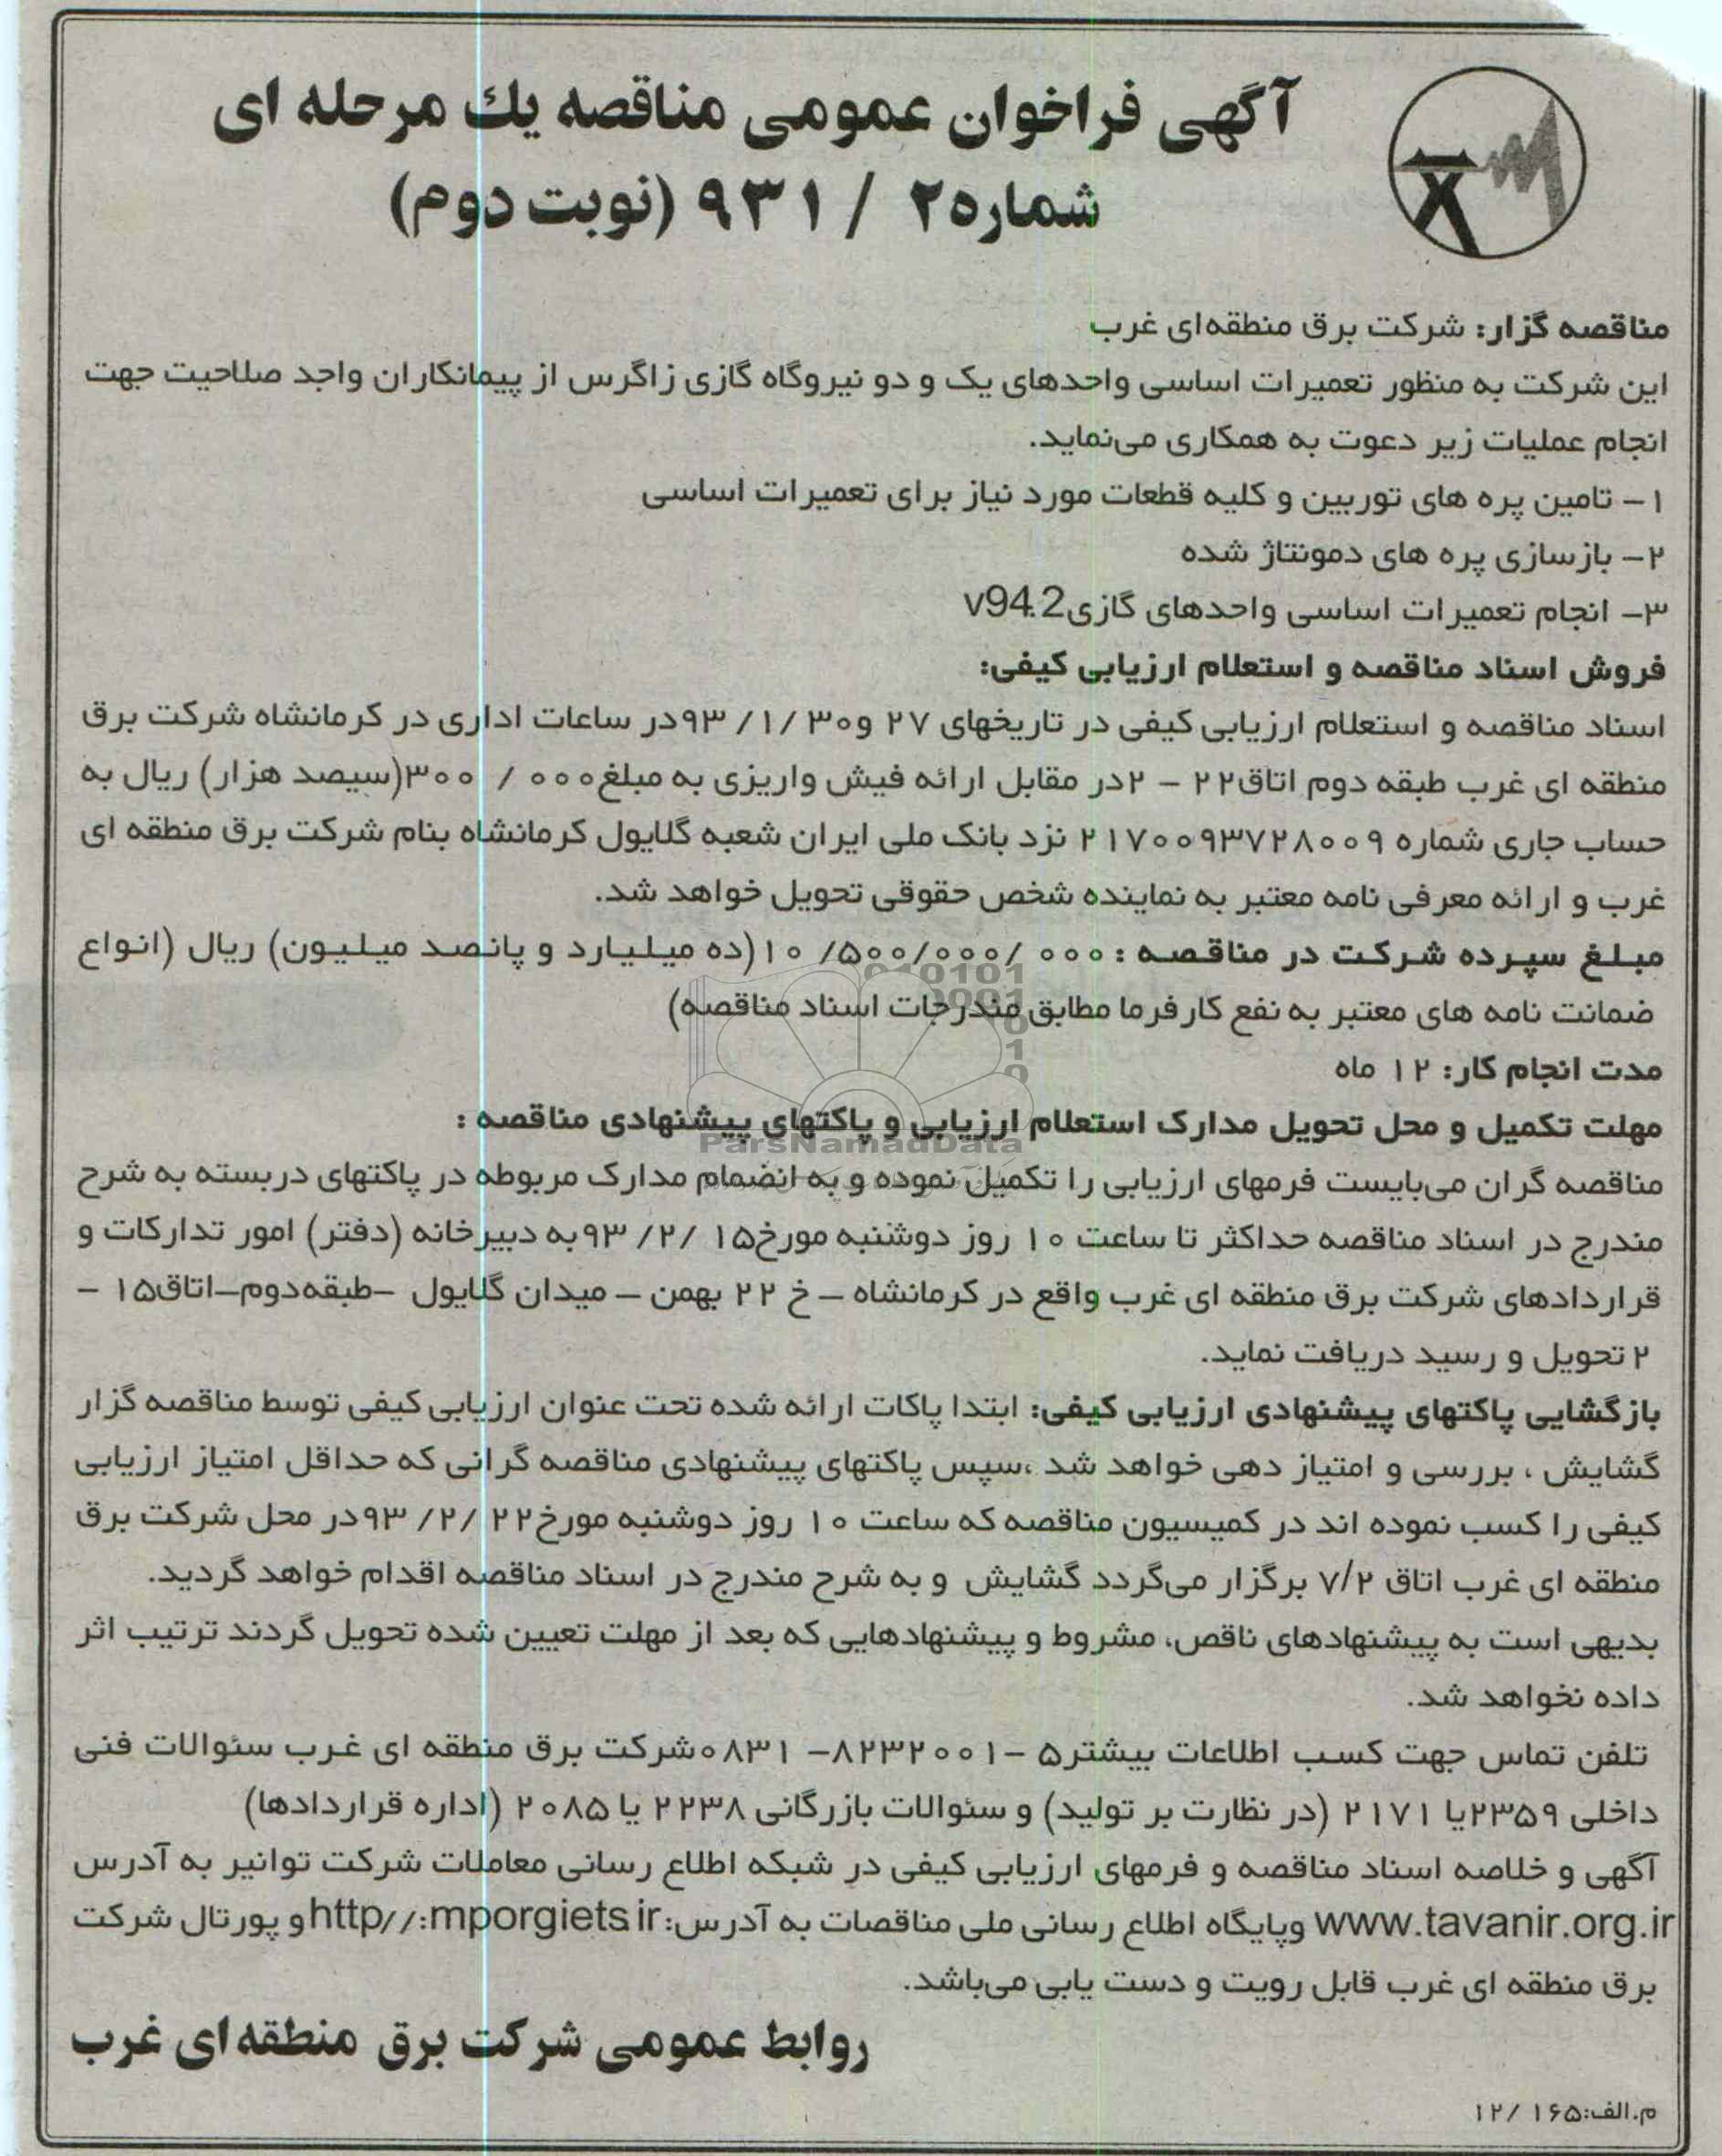 آگهی فراخوان عمومی مناقصه یك مرحله ای
شماره۲ / ۹۳۱ (نوبت دوم)
مناقصه گزار: شرکت برق منطقه‌ای غرب
این شرکت به منظور تعمیرات اساسی واحدهای یک و دو نیروگاه گازی زاگرس از پیمانکاران واجد صلاحیت جهت
انجام عملیات زیر دعوت به همکاری می‌نماید.
۱- تامین پره های توربین و کلیه قطعات مورد نیاز برای تعمیرات اساسی
۲- بازسازی پره های دمونتاژ شده
۳- انجام تعمیرات اساسی واحدهای گازی v94.2
فروش اسناد مناقصه و استعلام ارزیابی کیفی:
اسناد مناقصه و استعلام ارزیابی کیفی در تاریخهای ۲۷ و۳۰ /۱/ ۹۳در ساعات اداری در کرمانشاه شرکت برق
منطقه ای غرب طبقه دوم اتاق۲۲ - ۲در مقابل ارائه فیش واریزی به مبلغ۰۰۰ / ۳۰۰(سیصد هزار) ریال به
حساب جاری شماره ۲۱۷۰۰۹۳۷۲۸۰۰۹ نزد بانک ملی ایران شعبه گلایول کرمانشاه بنام شرکت برق منطقه ای
غرب و ارائه معرفی نامه معتبر به نماینده شخص حقوقی تحویل خواهد شد.
مبلغ سپرده شرکت در مناقصه : ۰۰۰ /۱۰ /۵۰۰/۰۰۰(ده میلیارد و پانصد میلیون) ریال (انواع
ضمانت نامه های معتبر به نفع کارفرما مطابق مندرجات اسناد مناقصه)
مدت انجام کار: ۱۲ ماه
مهلت تکمیل و محل تحویل مدارک استعلام ارزیابی و پاکتهای پیشنهادی مناقصه :
ParsNamadData
مناقصه گران می‌بایست فرمهای ارزیابی را تکمیل نموده و به انضمام مدارک مربوطه در پاکتهای دربسته به شرح
مندرج در اسناد مناقصه حداکثر تا ساعت ۱۰ روز دوشنبه مورخ۱۵ /۲/ ۹۳به دبیرخانه (دفتر) امور تدارکات و
قراردادهای شرکت برق منطقه ای غرب واقع در کرمانشاه – خ ۲۲ بهمن – میدان گلایول -طبقه‌دوم-اتاق۱۵ -
۲ تحویل و رسید دریافت نماید.
بازگشایی پاکتهای پیشنهادی ارزیابی کیفی: ابتدا پاکات ارائه شده تحت عنوان ارزیابی کیفی توسط مناقصه گزار
گشایش ، بررسی و امتیاز دهی خواهد شد ،سپس پاکتهای پیشنهادی مناقصه گرانی که حداقل امتیاز ارزیابی
کیفی را کسب نموده اند در کمیسیون مناقصه که ساعت ۱۰ روز دوشنبه مورخ۲۲ /۲/ ۹۳در محل شرکت برق
منطقه ای غرب اتاق ۷/۲ برگزار می‌گردد گشایش و به شرح مندرج در اسناد مناقصه اقدام خواهد گردید.
بدیهی است به پیشنهادهای ناقص، مشروط و پیشنهادهایی که بعد از مهلت تعیین شده تحویل گردند ترتیب اثر
داده نخواهد شد.
تلفن تماس جهت کسب اطلاعات بیشتر۵ -۸۲۳۲۰۰۱- ۰۸۳۱شرکت برق منطقه ای غرب سئوالات فنی
داخلی ۲۳۵۹یا ۲۱۷۱ (در نظارت بر تولید) و سئوالات بازرگانی ۲۲۳۸ یا ۲۰۸۵ (اداره قراردادها)
آگهی و خلاصه اسناد مناقصه و فرمهای ارزیابی کیفی در شبکه اطلاع رسانی معاملات شرکت توانیر به آدرس
www.tavanir.org.ir وپایگاه اطلاع رسانی ملی مناقصات به آدرس: http//:mporgiets.ir و پورتال شرکت
برق منطقه ای غرب قابل رویت و دست یابی می‌باشد.
روابط عمومی شرکت برق منطقه‌ای غرب
م.الف:۱۶۵ /۱۲